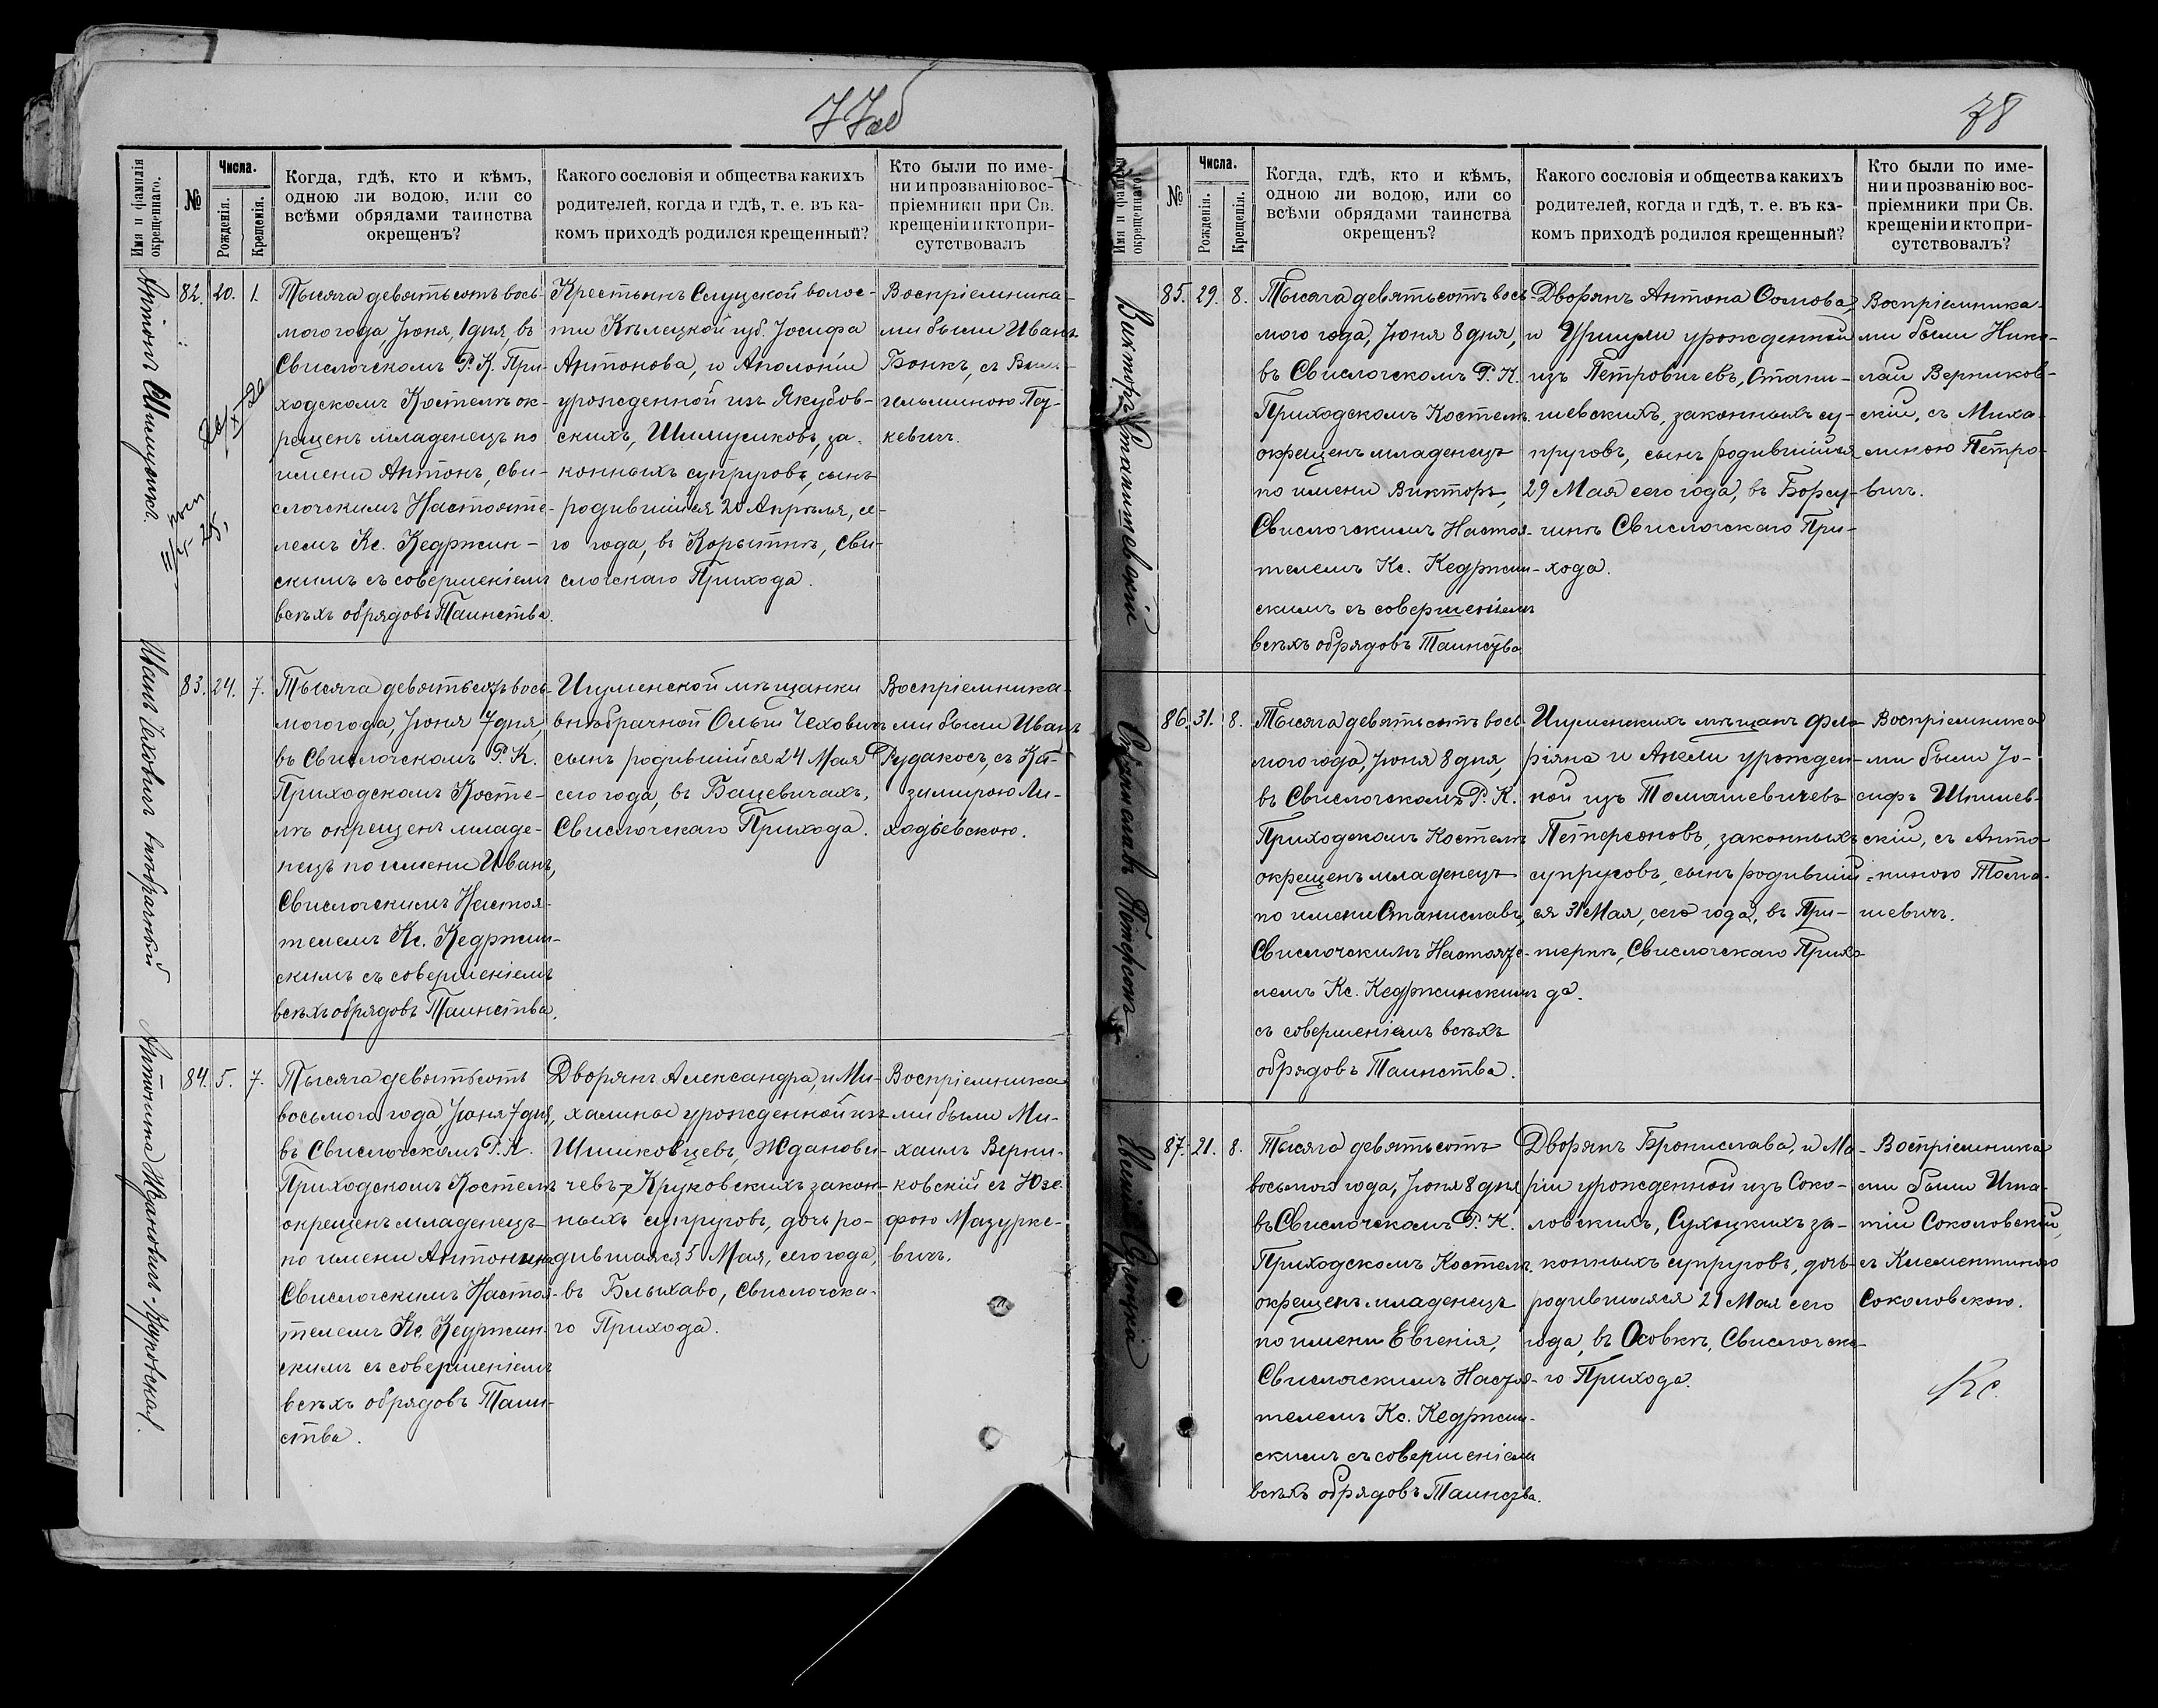 77об
Имя и фамилія окрещеннаго.
№
Числа.
Рожденія.
Крещенія.
Когда, гдѣ, кто и кѣмъ,
одною ли водою, или со
всѣми обрядами таинства
окрещенъ?
Какого сословія и общества какихъ
родителей, когда и гдѣ, т. е. въ ка-
комъ приходѣ родился крещенный?
Кто были по име-
ни и прозванію вос-
пріемники при Св.
крещеніи и кто при-
сутствовалъ
Антонъ Шимусикъ.
82.
20.
1.
Тысяча девятьсотъ вось-
мого года, Іюня, 1 дня, въ
Свислочскомъ Р. К. При-
ходскомъ Костелѣ ок-
рещенъ младенецъ по
имени Антонъ, Сви-
слочскимъ Настояте-
лемъ Кс. Кедржин-
скимъ съ совершеніемъ
всѣхъ обрядовъ Таинства.
Крестьянъ Слуцской волос-
ти Кѣлецкой губ. Іосифа
Антонова, и Аполоніи
урожденной изъ Якубов-
скихъ, Шимусиковъ, за-
конныхъ супруговъ, сынъ
родившійся 20 Апрѣля, се-
го года, въ Корытнѣ, Сви-
слочскаго Прихода.
Воспріемника-
ми были Иванъ
Бонкъ, съ Виль-
гельминою Пец-
кевичъ.
Иванъ Чеховичъ внѣбрачный
83.
24.
7.
Тысяча девятьсотъ вось-
мого года, Іюня 7 дня,
въ Свислочскомъ Р. К.
Приходскомъ Косте-
лѣ окрещенъ младе-
нецъ по имени Иванъ,
Свислочскимъ Настоя-
телемъ Кс. Кедржин-
скимъ съ совершеніемъ
всѣхъ обрядовъ Таинства.
Игуменской мѣщанки
внѣбрачной Ольги Чеховичъ
сынъ родившійся 24 Мая
сего года, въ Бацевичахъ,
Свислочскаго Прихода.
Воспріемника-
ми были Иванъ
Рудакосъ, съ Ка-
зимирою Ли-
ходіевскою.
Антонина Ждановичъ-Круковская.
84.
5.
7.
Тысяча девятьсотъ
восьмого года, Іюня 7 дня,
въ Свислочскомъ Р. К.
Приходскомъ Костелѣ
окрещенъ младенецъ
по имени Антонина
Свислочскимъ Настоя-
телемъ Кс. Кедржин-
скимъ съ совершеніемъ
всѣхъ обрядовъ Таин-
ства.
Дворянъ Александра, и Ми-
халины урожденной изъ
Шишковцевъ, Жданови-
чевъ-Круковскихъ закон-
ныхъ супруговъ, дочь ро-
дившаяся 5 Мая, сего года,
въ Блыхаво, Свислочска-
го Прихода.
Воспріемника
ми были Ми-
хаилъ Верни-
ковскій съ Юзе-
фою Мазурке-
вичъ.
78
Имя и фамилія окрещеннаго.
№
Числа.
Рожденія.
Крещенія.
Когда, гдѣ, кто и кѣмъ,
одною ли водою, или со
всѣми обрядами таинства
окрещенъ?
Какого сословія и общества какихъ
родителей, когда и гдѣ, т. е. въ ка-
комъ приходѣ родился крещенный?
Кто были по име-
ни и прозванію вос-
пріемники при Св.
крещеніи и кто при-
сутствовалъ?
Викторъ Станишевскій
85.
29.
8.
Тысяча девятьсотъ вось-
мого года, Іюня 8 дня,
въ Свислочскомъ Р. К.
Приходскомъ Костелѣ
окрещенъ младенецъ
по имени Викторъ,
Свислочскимъ Настоя-
телемъ Кс. Кедржин-
скимъ съ совершеніемъ
всѣхъ обрядовъ Таинства
Дворянъ Антона Осипова,
и Уршули урожденной
изъ Петровичевъ, Стани-
шевскихъ, законныхъ су-
пруговъ, сынъ родившійся
29 Мая сего года, въ Борсу-
чинѣ Свислочскаго При-
хода.
Воспріемника-
ми были Нико-
лай Верников-
скій, съ Миха-
линою Петро-
вичъ.
Станиславъ Петерсонъ
86.
31.
8.
Тысяча девятьсотъ вось-
мого года, Іюня 8 дня,
въ Свислочскомъ Р. К.
Приходскомъ Костелѣ
окрещенъ младенецъ
по имени Станиславъ,
Свислочскимъ Настояте-
лемъ Кс. Кедржинскимъ
съ совершеніемъ всѣхъ
обрядовъ Таинства.
Игуменскихъ мѣщанъ Фло-
ріяна и Анели урожден-
ной изъ Томашевичевъ
Петерсоновъ, законныхъ
супруговъ, сынъ родивший-
ся 31 Мая, сего года, въ При-
терпѣ, Свислочскаго Прихо-
да.
Воспріемника
ми были Іо-
сифъ Шпилев-
скій, съ Анто-
ниною Тома-
шевичъ.
Евгенія Сухоцкая
87.
21.
8.
Тысяча девятьсотъ
восьмого года, Іюня 8 дня
въ Свислочскомъ Р. К.
Приходскомъ Костелѣ
окрещенъ младенецъ
по имени Евгенія,
Свислочскимъ Настоя-
телемъ Кс. Кедржин-
скимъ съ совершеніемъ
всѣхъ обрядовъ Таинства.
Дворянъ Бронислава, и Ма-
ріи урожденной изъ Соко-
ловскихъ, Сухоцкихъ за-
конныхъ супруговъ, дочь
родившаяся 21 Мая сего
года, въ Осовкѣ, Свислочска-
го Прихода.
Воспріемника
ми были Игна-
тій Соколовскій,
съ Клементиною
Соколовскою.
Кс.